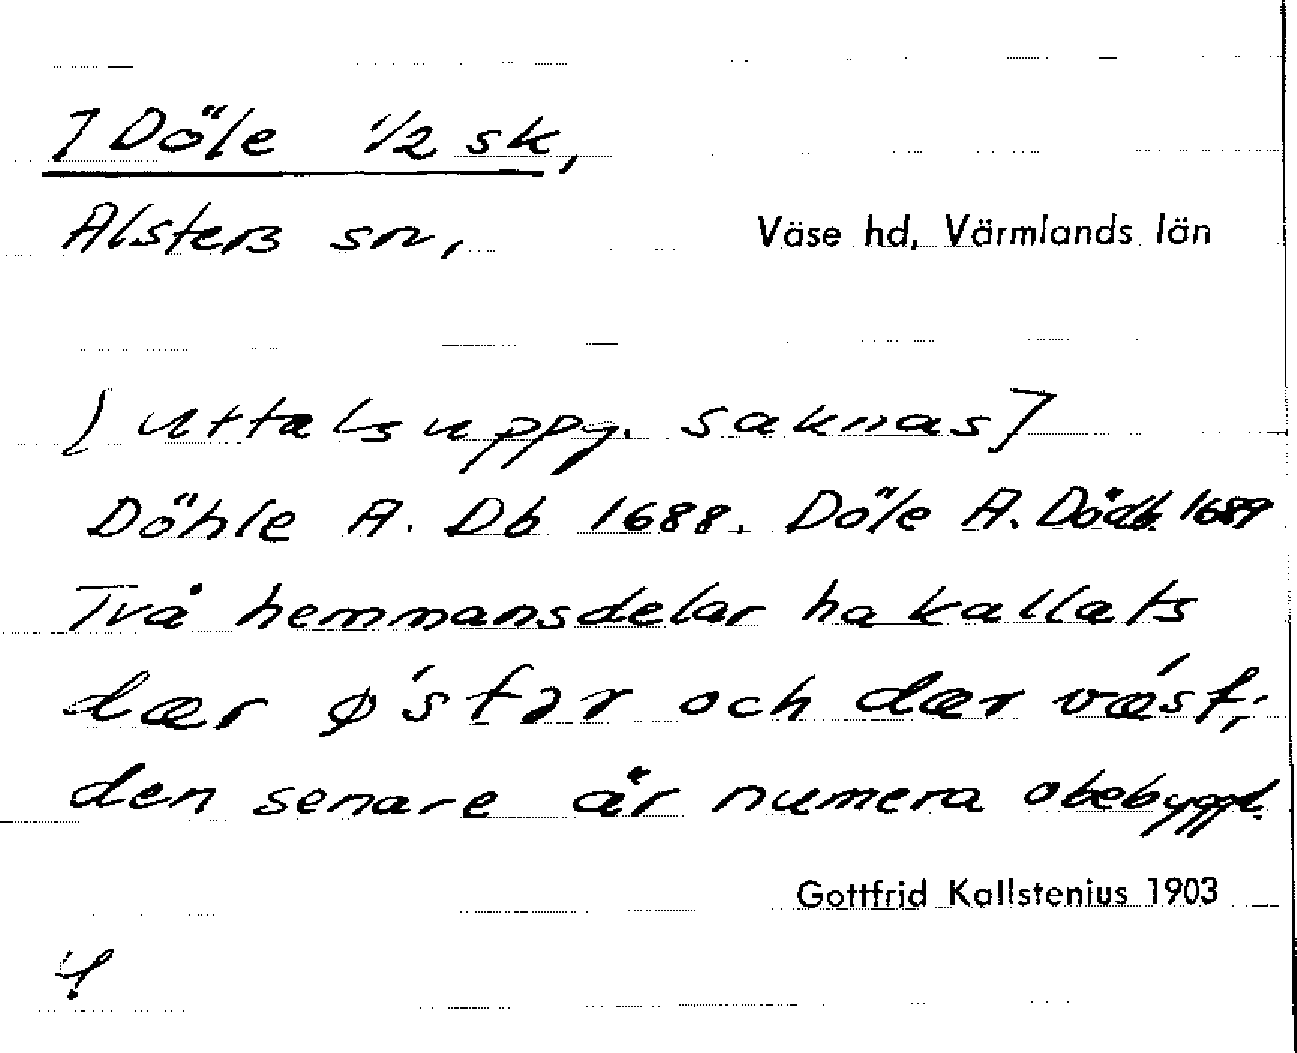 7 Döle 1/2 sk,
Alsters sn, Väse hd, Värmlands län
[uttalsuppg. saknas]
Döhle A. Db 1688. Döle A. Dödb. 1689
Två hemmansdelar ha kallats
dær ǿstər och dær væ´st;
den senare är numera obebyggd.
Gottfrid Kallstenius 1903
4